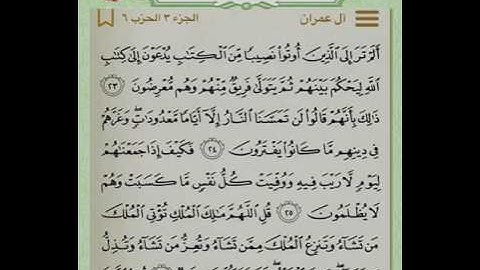 آل عمران الجزء ٣ الحزب ٦
أَلَمْ تَرَ إِلَى ٱلَّذِينَ أُوتُوا۟ نَصِيبًا مِّنَ ٱلْكِتَٰبِ يُدْعَوْنَ إِلَىٰ كِتَٰبِ
ٱللَّهِ لِيَحْكُمَ بَيْنَهُمْ ثُمَّ يَتَوَلَّىٰ فَرِيقٌ مِّنْهُمْ وَهُم مُّعْرِضُونَ ٢٣
ذَٰلِكَ بِأَنَّهُمْ قَالُوا۟ لَن تَمَسَّنَا ٱلنَّارُ إِلَّآ أَيَّامًا مَّعْدُودَٰتٍ ۖ وَغَرَّهُمْ
فِى دِينِهِم مَّا كَانُوا۟ يَفْتَرُونَ ٢٤ فَكَيْفَ إِذَا جَمَعْنَٰهُمْ
لِيَوْمٍ لَّا رَيْبَ فِيهِ وَوُفِّيَتْ كُلُّ نَفْسٍ مَّا كَسَبَتْ وَهُمْ
لَا يُظْلَمُونَ ٢٥ قُلِ ٱللَّهُمَّ مَٰلِكَ ٱلْمُلْكِ تُؤْتِى ٱلْمُلْكَ
مَن تَشَآءُ وَتَنزِعُ ٱلْمُلْكَ مِمَّن تَشَآءُ وَتُعِزُّ مَن تَشَآءُ وَتُذِلُّ